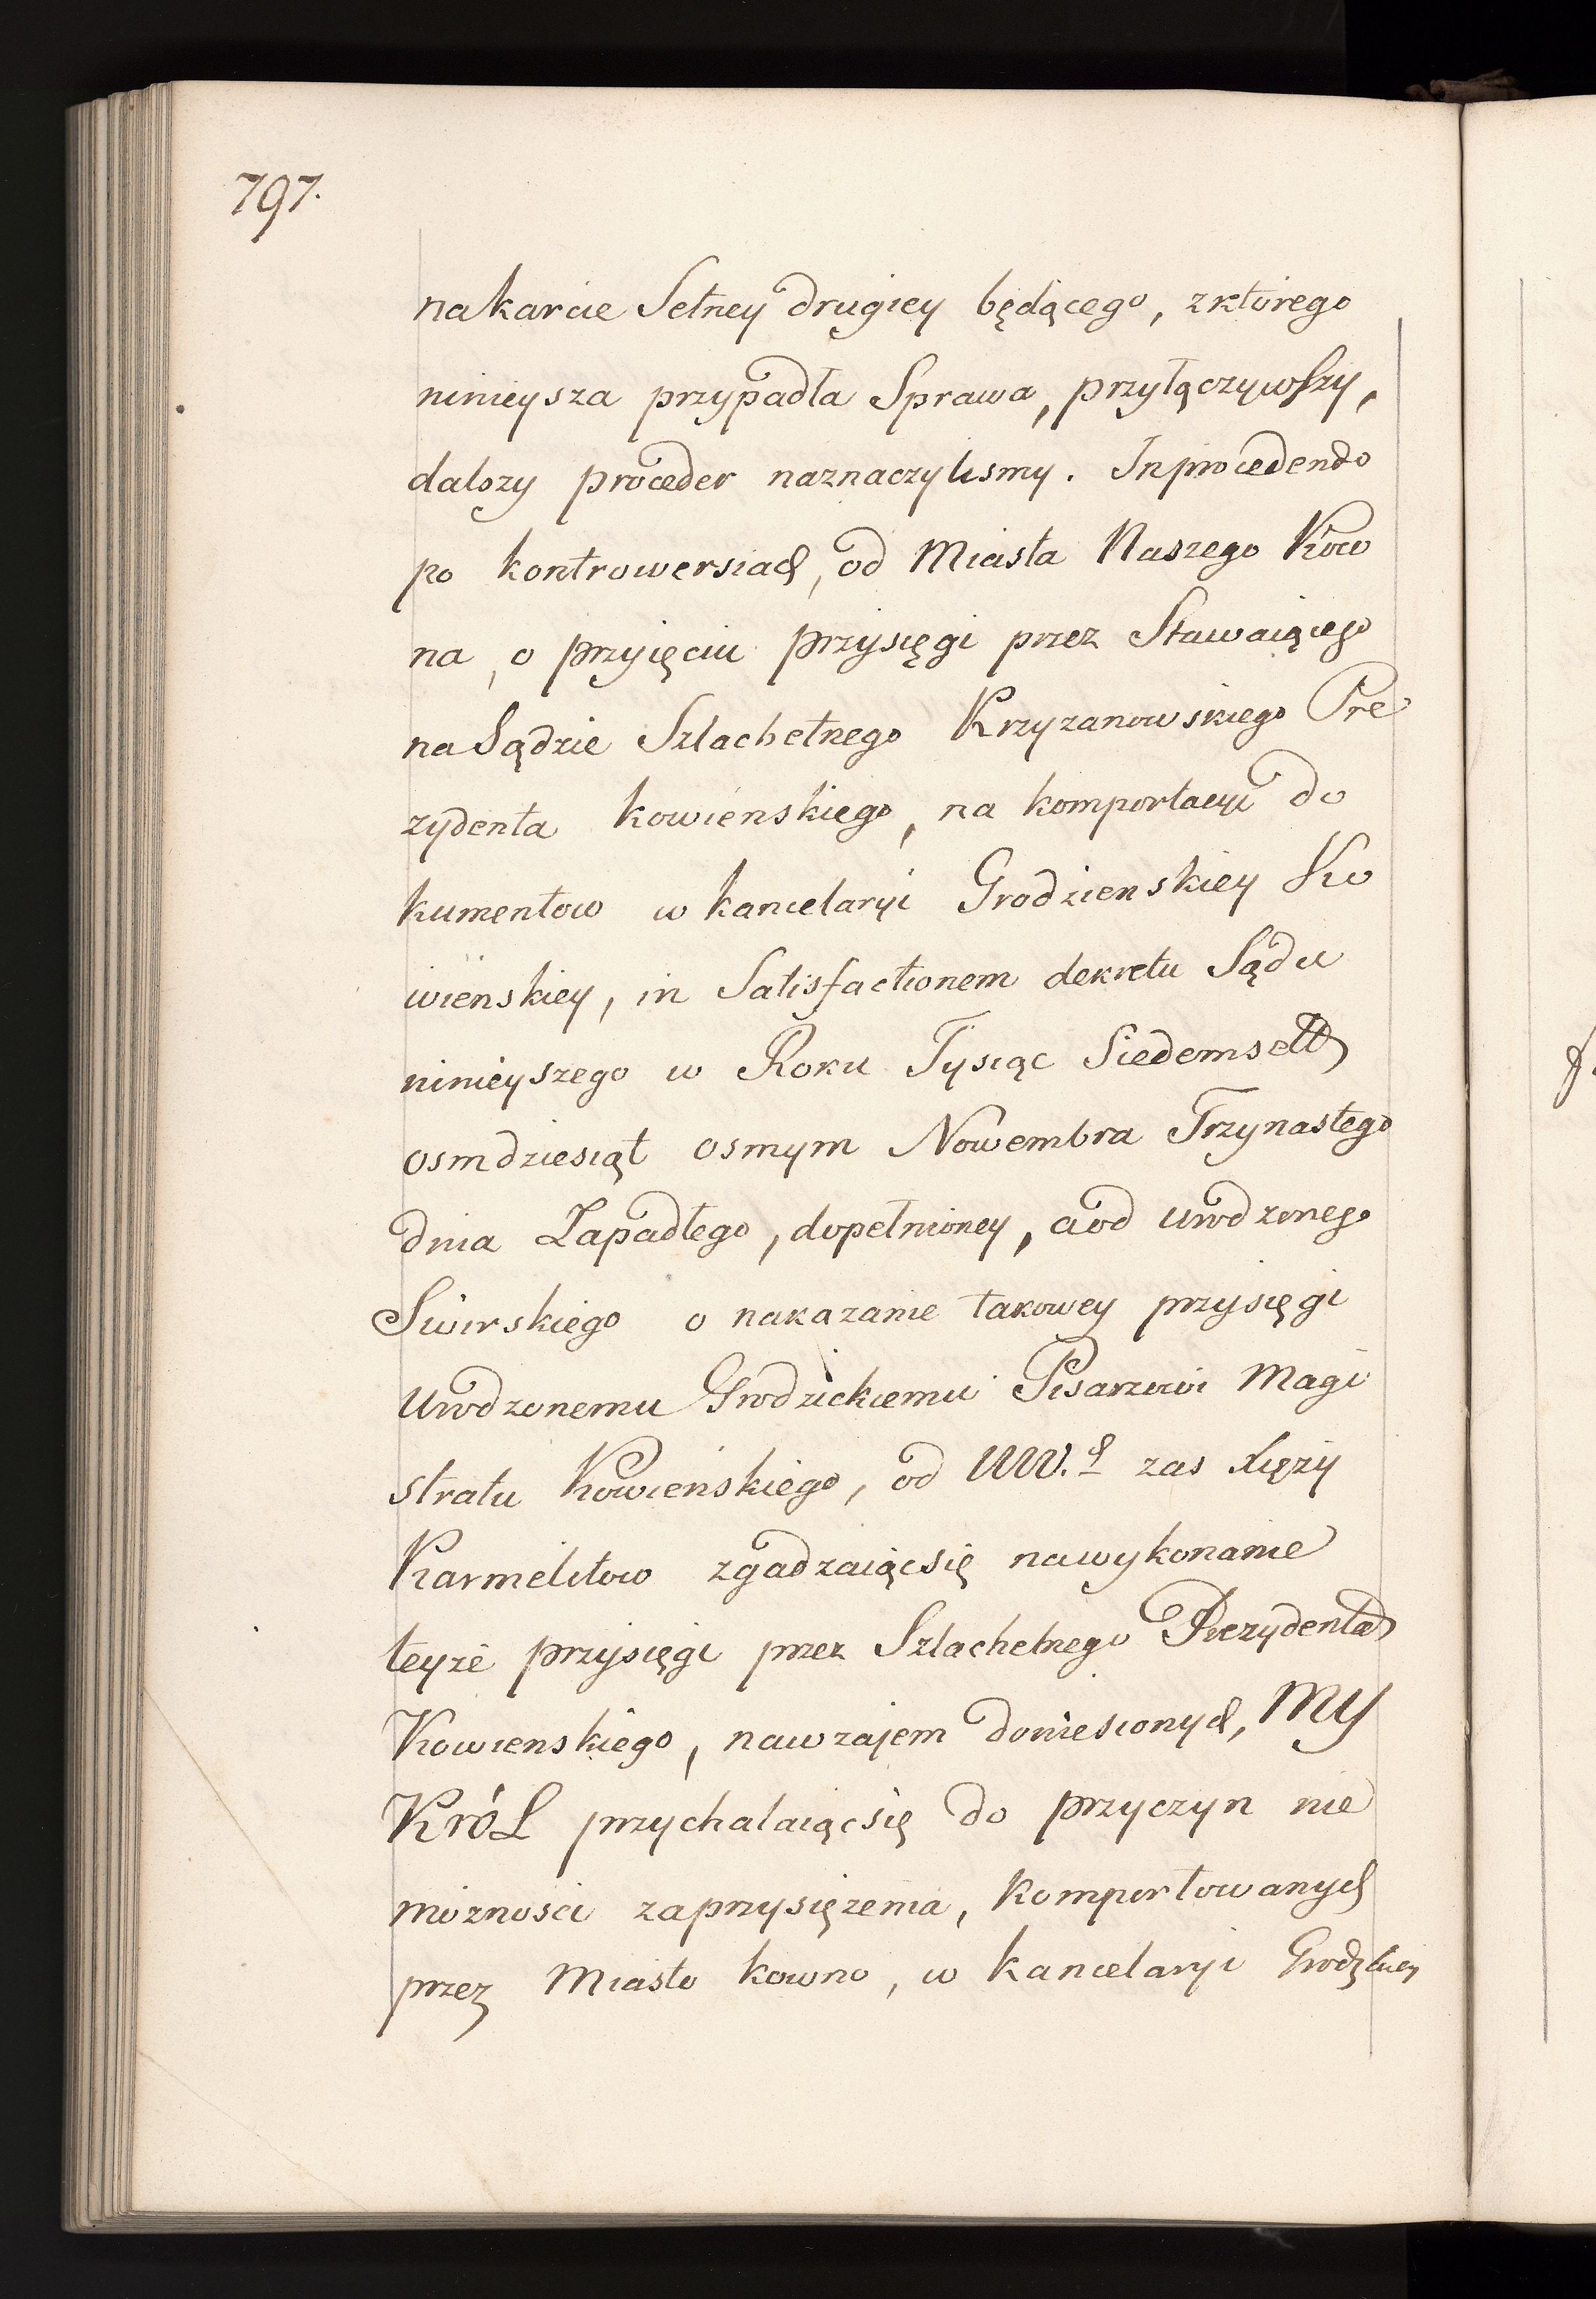 797.
na karcie Setney drugiey będącego, z którego
ninieysza przypadła Sprawa, przyłączywszy,
dalszy proceder naznaczylismy. Inprocedendo
po kontrowersiach, od Miasta Naszego Kow
na, o przyięciu przysięgi przez Stawaiącego
na Sądzie Szlachetnego Krzyzanowskiego Pre
zydenta kowienskiego, na komportacyi do
kumentow w kancelaryi Grodzienskiey Ko
wienskiey, in Satisfactionem dekretu Sądu
ninieyszego w Roku Tysiąc Siedemsett
osmdziesiąt osmym Nowembra Trzynastego
dnia Zapadłego, dopełnioney, a od urodzonego
Swirskiego o nakazanie takowey przysięgi
Urodzonemu Grodzickiemu Pisarzowi Magi
stratu Kowienskiego, od WW.ch zas Xięży
Karmelitow zgadzaiącsię na wykonanie
teyże przysięgi przez Szlachetnego Prezydenta
Kowienskiego, nawzajem doniesionych, MY
KróL przychalaiącsię do przyczyn nie
możnosci zaprzysięzenia, komportowanych
przez Miasto kowno, w kancelaryi Grodzkiey